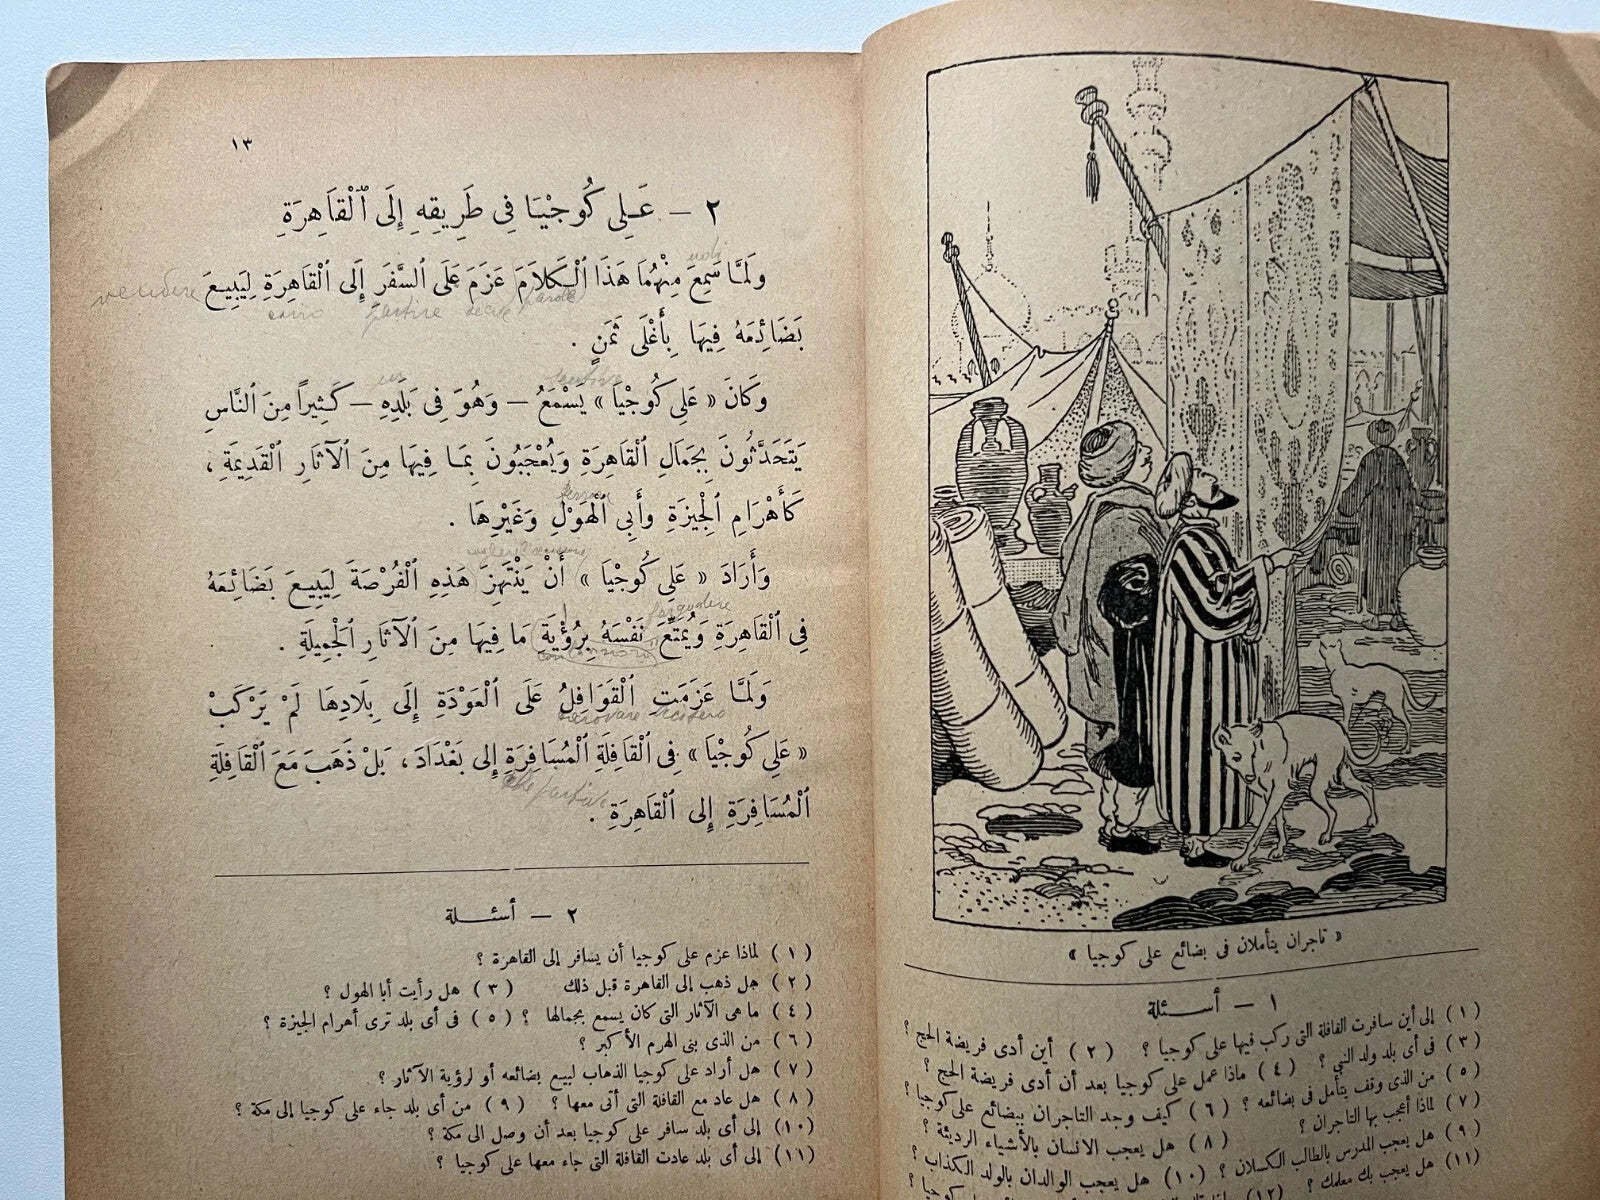 « تاجران يتأملان فى بضائع على كوجيا »
١ — أسئلة
(١) إلى أين سافرت القافلة التى ركب فيها على كوجيا ؟ (٢) أين أدى فريضة الحج ؟
(٣) فى أى بلد ولد النبي ؟ (٤) ماذا عمل على كوجيا بعد أن أدى فريضة الحج ؟
(٥) من الذى وقف يتأمل فى بضائعه ؟ (٦) كيف وجد التاجران ببضائع على كوجيا ؟
(٧) لماذا أعجب بها التاجران ؟ (٨) هل يعجب الانسان بالأشياء الرديئة ؟
(٩) هل يعجب المدرس بالطالب الكسلان ؟ (١٠) هل يعجب الوالدان بالولد الكذاب ؟
(١١) هل يعجب بك معلمك ؟ (١٢)
١٣
٢ — عَلِى كُوجْيَا فِى طَرِيقِهِ إِلَى ٱلْقَاهِرَةِ
وَلَمَّا سَمِعَ مِنْهُمَا هَذَا ٱلْكَلَامَ عَزَمَ عَلَى ٱلسَّفَرِ إِلَى ٱلْقَاهِرَةِ لِيَبِيعَ
vendere
partire
parole
بَضَائِعَهُ فِيهَا بِأَغْلَى ثَمَنٍ .
وَكَانَ « عَلِى كُوجْيَا » يَسْمَعُ — وَهُوَ فِى بَلَدِهِ — كَثِيراً مِنَ ٱلنَّاسِ
يَتَحَدَّثُونَ بِجَمَالِ ٱلْقَاهِرَةِ وَيُعْجَبُونَ بِمَا فِيهَا مِنَ ٱلْآثَارِ ٱلْقَدِيمَةِ ،
كَأَهْرَامِ ٱلْجِيزَةِ وَأَبِى ٱلْهَوْلِ وَغَيْرِهَا .
وَأَرَادَ « عَلِى كُوجْيَا » أَنْ يَنْتَهِزَ هَذِهِ ٱلْفُرْصَةَ لِيَبِيعَ بَضَائِعَهُ
فِى ٱلْقَاهِرَةِ وَيُمَتِّعَ نَفْسَهُ بِرُؤْيَةِ مَا فِيهَا مِنَ ٱلْآثَارِ ٱلْجَمِيلَةِ .
وَلَمَّا عَزَمَتِ ٱلْقَوَافِلُ عَلَى ٱلْعَوْدَةِ إِلَى بِلَادِهَا لَمْ يَرْكَبْ
« عَلِى كُوجْيَا » فِى ٱلْقَافِلَةِ ٱلْمُسَافِرَةِ إِلَى بَغْدَادَ ، بَلْ ذَهَبَ مَعَ ٱلْقَافِلَةِ
ٱلْمُسَافِرَةِ إِلَى ٱلْقَاهِرَةِ .
٢ — أسئلة
(١) لماذا عزم على كوجيا أن يسافر إلى القاهرة ؟
(٢) هل ذهب إلى القاهرة قبل ذلك (٣) هل رأيت أبا الهول ؟
(٤) ما هى الآثار التى كان يسمع بجمالها ؟ (٥) فى أى بلد ترى أهرام الجيزة ؟
(٦) من الذى بنى الهرم الأكبر ؟
(٧) هل أراد على كوجيا الذهاب لبيع بضائعه أو لرؤية الآثار ؟
(٨) هل عاد مع القافلة التى أتى معها ؟ (٩) من أى بلد جاء على كوجيا إلى مكة ؟
(١٠) إلى أى بلد سافر على كوجيا بعد أن وصل الى مكة ؟
(١١) إلى أى بلد عادت القافلة التى جاء معها على كوجيا ؟